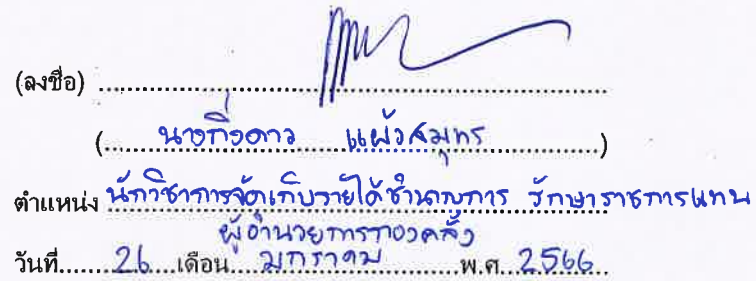 (ลงชื่อ) ........................................................
(..........นางกิ่งดาว แผ้วสมุทร..........)
ตำแหน่ง นักวิชาการจัดเก็บรายได้ชำนาญการ รักษาราชการแทน
ผู้อำนวยการกองคลัง
วันที่.......26.....เดือน....มกราคม....................พ.ศ..2566..